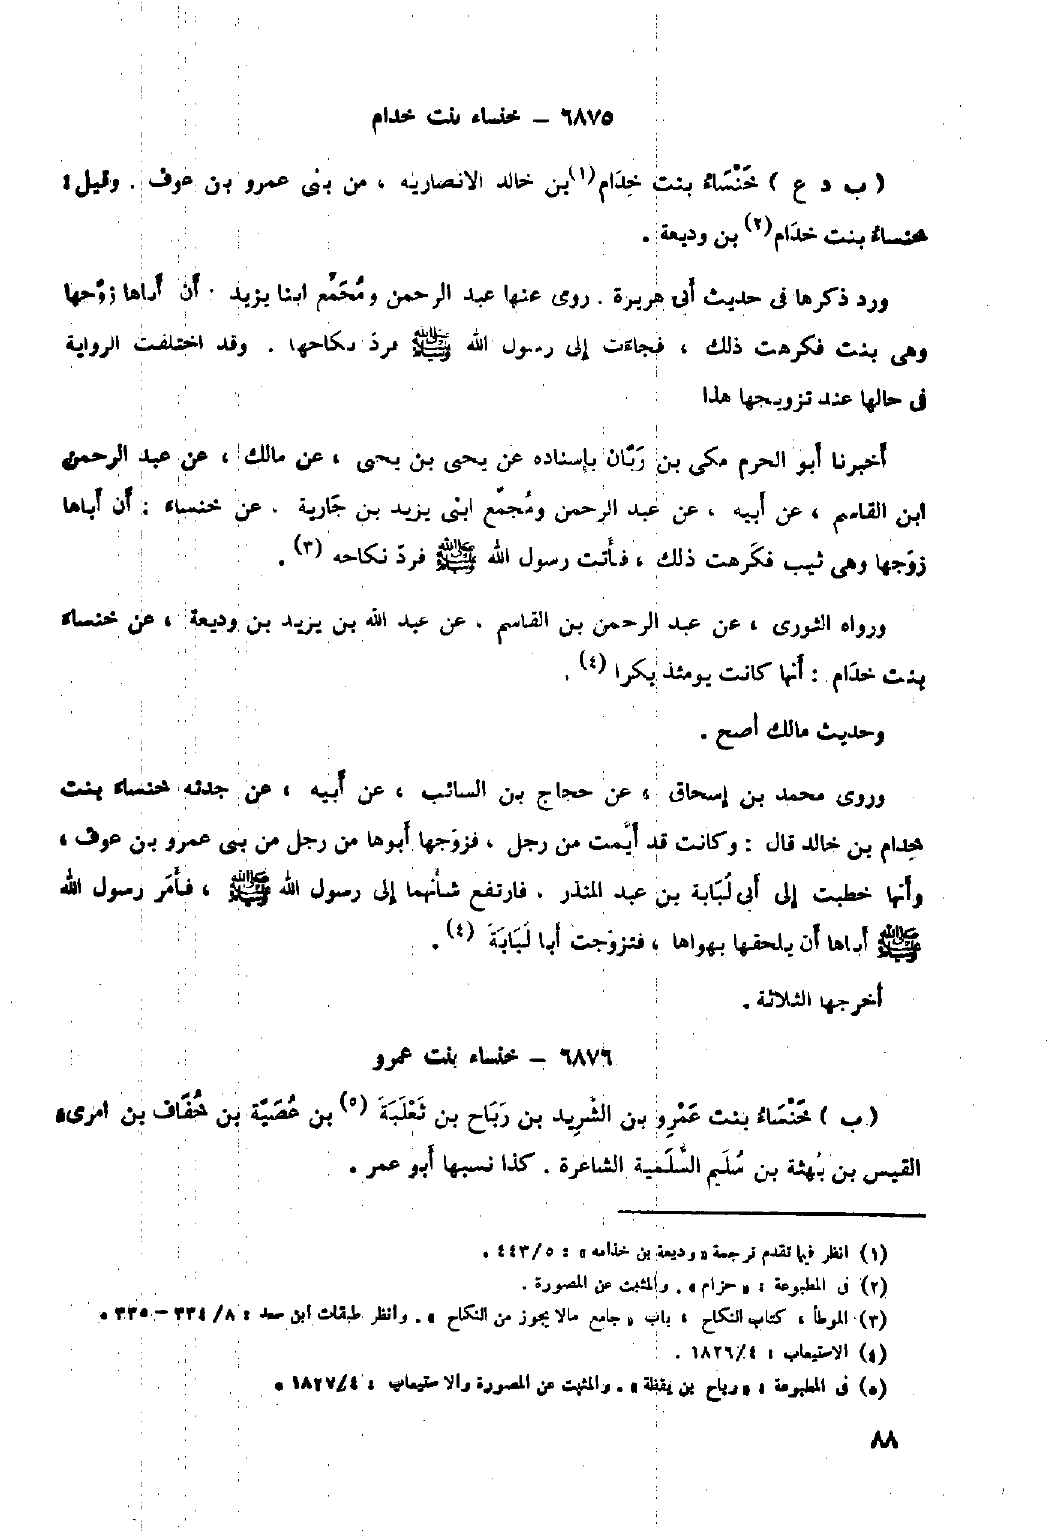 ٦٨٧٥ – خنساء بنت خدام
( ب د ع ) خَنْسَاءُ بنت خِدَام (١) بن خالد الانصارية ، من بنى عمرو بن عوف . وقيل :
خنساءُ بنت خدَام (٢) بن وديعة .
ورد ذكرها فى حديث أبى هريرة . روى عنها عبد الرحمن ومُجَمِّع ابنا يزيد : أن أباها زوّجها
وهى بنت فكرهت ذلك ، فجاءَت إلى رسول الله ﷺ فردّ نكاحها . وقد اختلفت الرواية
فى حالها عند تزويجها هذا
أخبرنا أبو الحرم مكى بن رَبَّان بإسناده عن يحيى بن يحيى ، عن مالك ، عن عبد الرحمن
ابن القاسم ، عن أبيه ، عن عبد الرحمن ومُجمِّع ابنى يزيد بن جَارية . عن خنساء : أن أباها
زوّجها وهى ثيب فكَرهت ذلك ، فأَتت رسول الله ﷺ فردّ نكاحه (٣) .
ورواه الثورى ، عن عبد الرحمن بن القاسم . عن عبد الله بن يزيد بن وديعة ، عن خنساءَ
بنت خدَام : أَنها كانت يومئذ بكرا (٤) .
وحديث مالك أصح .
وروى محمد بن إسحاق ، عن حجاج بن السائب ، عن أَبيه ، عن جدته خنساءَ بنت
خِدام بن خالد قال : وكانت قد أَيِّمت من رجل ، فزوّجها أَبوها من رجل من بنى عمرو بن عوف ،
وأَنها خطبت إلى أَبى لُبَابة بن عبد المنذر . فارتفع شأْنهما إلى رسول الله ﷺ ، فأَمَر رسول الله
ﷺ أَباها أَن يلحقها بهواها ، فتزوّجت أَبا لُبَابَةَ (٤) .
أخرجها الثلاثة .
٦٨٧٦ – خنساء بنت عمرو
( ب ) خَنْسَاءُ بنت عَمْرِو بن الشَّرِيد بن رَبَاح بن ثَعْلَبَةَ (٥) بن عُصَيَّة بن خُفَاف بن امرىء
القيس بن بُهثة بن سُلَيم السُّلَمية الشاعرة . كذا نسبها أَبو عمر .
(١) انظر فيما تقدم ترجمة « وديعة بن خذامه » : ٤٤٣/٥ .
(٢) فى المطبوعة : « حزام » . والمثبت عن المصورة .
(٣) الموطأ ، كتاب النكاح ، باب « جامع مالا يجوز من النكاح » . وانظر طبقات ابن سعد : ٨/ ٣٣٤ – ٣٣٥ .
(٤) الاستيعاب : ١٨٢٦/٤ .
(٥) فى المطبوعة : « رياح بن يقظة » . والمثبت عن المصورة والاستيعاب : ١٨٢٧/٤ .
٨٨